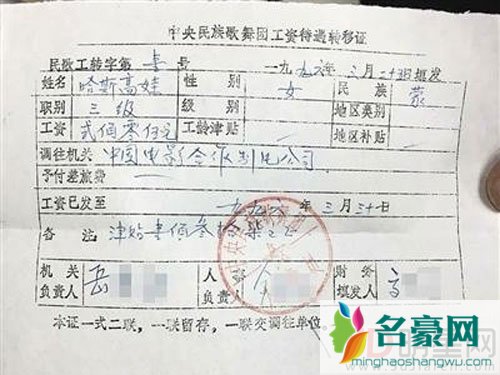 中央民族歌舞团工资待遇转移证
民歌工转字第 号 一九九六年三月二十 日填发
姓名 哈斯高娃 性别 女 民族 蒙
职别 三级 级别 地区类别
工资 贰佰零伍元 工龄津贴 地区补贴
调往机关 中国电影合作制片公司
予付差旅费
工资已发至 一九九六年三月三十日
备注 津贴壹佰叁拾柒元
机关负责人 岳 人事负责人 财务填发人
本证一式二联，一联留存，一联交调往单位
名豪网
minghaoshangcheng.com